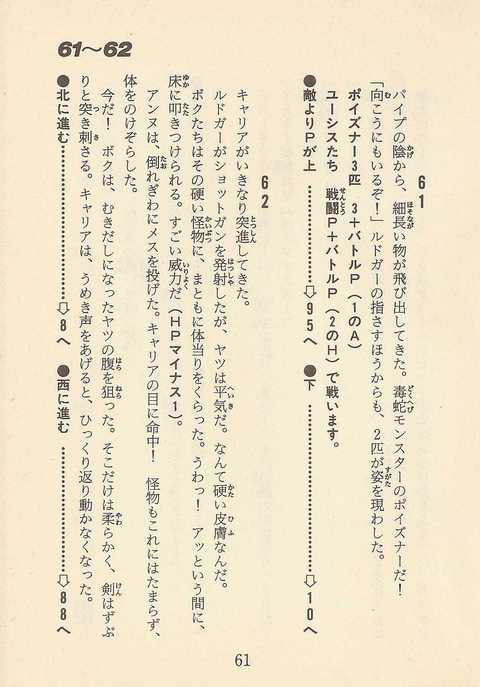 61～62
61
パイプの陰から、細長い物が飛び出してきた。毒蛇モンスターのポイズナーだ！
「向こうにもいるぞ！」ルドガーの指さすほうからも、2匹が姿を現わした。
ポイズナー3匹　3＋バトルP（1のA）
ユーシスたち　戦闘P＋バトルP（2のH）で戦います。
●敵よりPが上………………⇨95へ　●下………………⇨10へ
62
キャリアがいきなり突進してきた。
ルドガーがショットガンを発射したが、ヤツは平気だ。なんて硬い皮膚なんだ。
ボクたちはその硬い怪物に、まともに体当りをくらった。うわっ！　アッという間に、
床に叩きつけられる。すごい威力だ（HPマイナス1）。
アンヌは、倒れぎわにメスを投げた。キャリアの目に命中！　怪物もこれにはたまらず、
体をのけぞらした。
今だ！　ボクは、むきだしになったヤツの腹を狙った。そこだけは柔らかく、剣はずぶ
りと突き刺さる。キャリアは、うめき声をあげると、ひっくり返り動かなくなった。
●北に進む………………⇨8へ　●西に進む………………⇨88へ
61